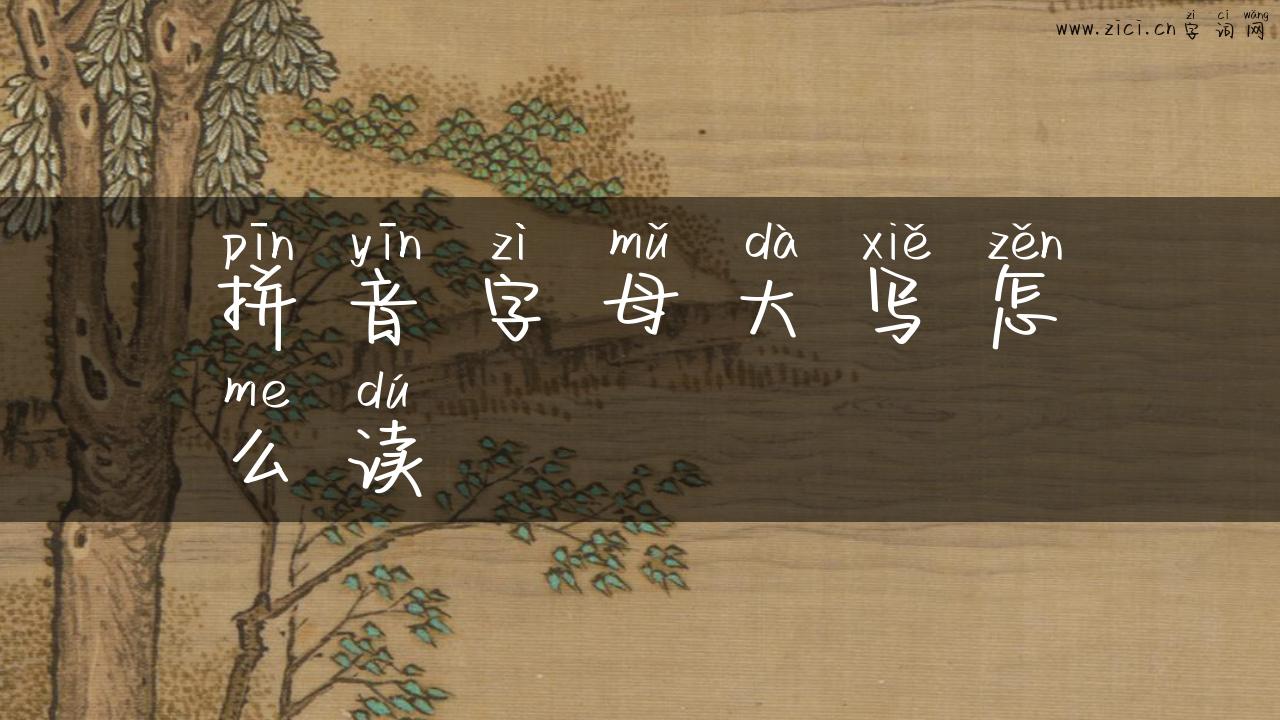 zì cí wǎng
www.zici.cn 字 词 网
pīn yīn zì mǔ dà xiě zěn
拼 音 字 母 大 写 怎
me dú
么 读